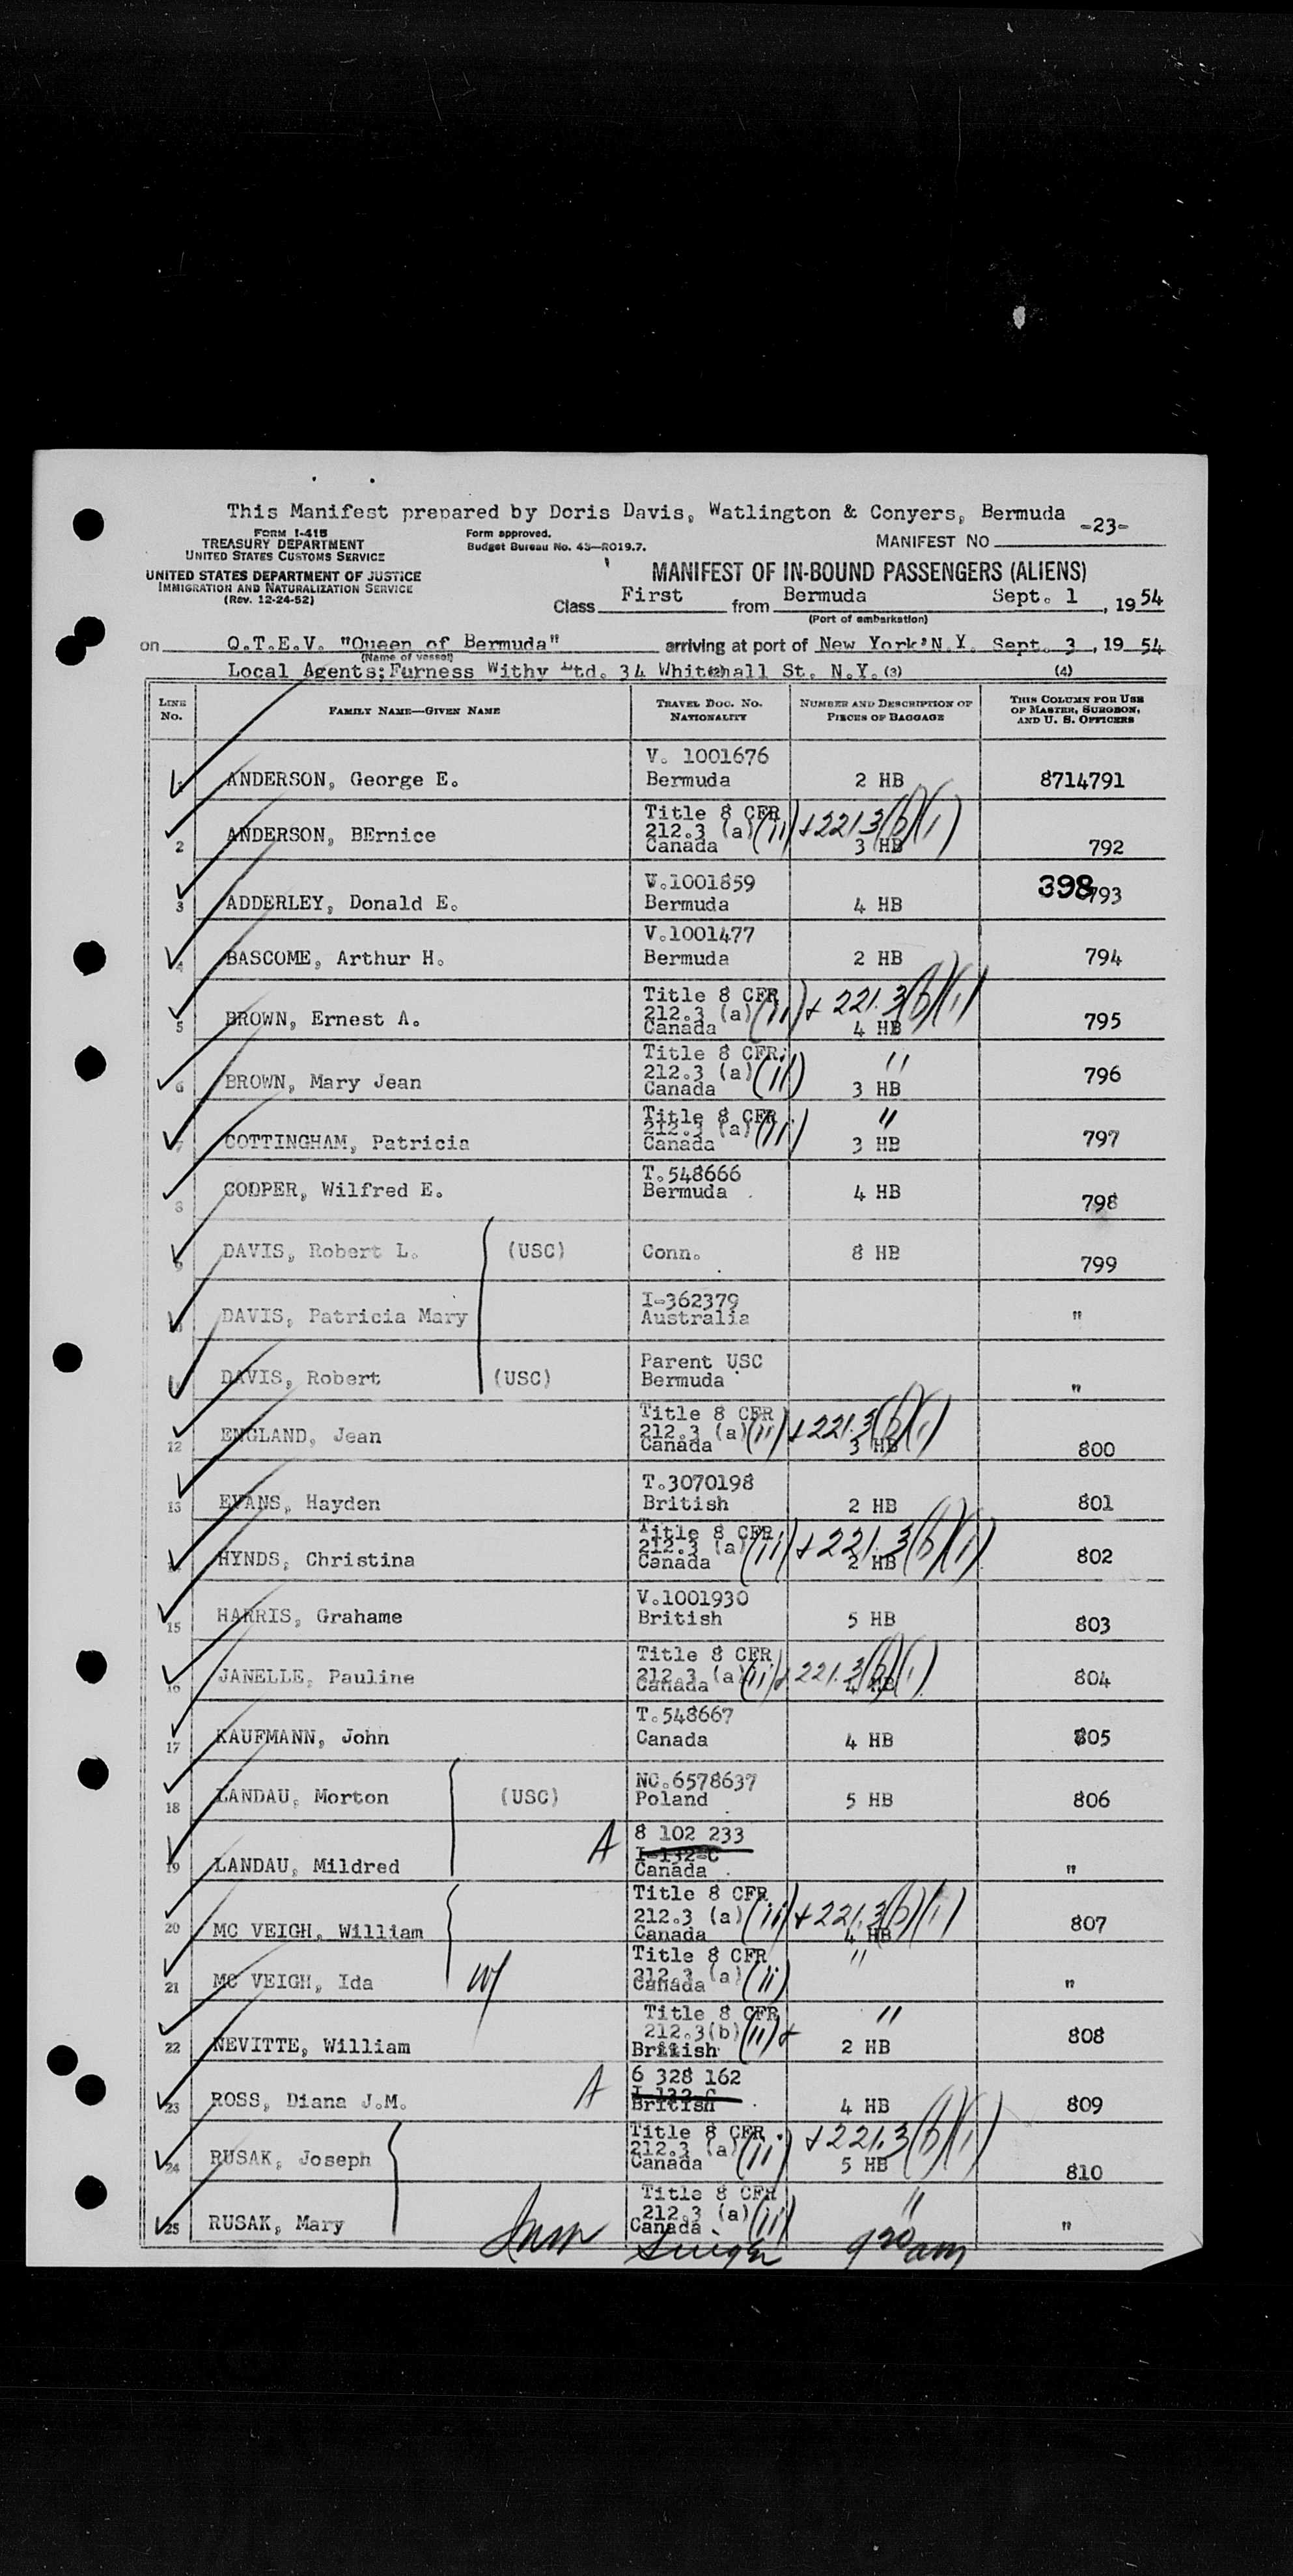 This Manifest prepared by Doris Davis, Watlington & Conyers, Bermuda
FORM I-415
TREASURY DEPARTMENT
UNITED STATES CUSTOMS SERVICE
Form approved.
Budget Bureau No. 43—R019.7.
MANIFEST NO -23-
UNITED STATES DEPARTMENT OF JUSTICE
IMMIGRATION AND NATURALIZATION SERVICE
(Rev. 12-24-52)
MANIFEST OF IN-BOUND PASSENGERS (ALIENS)
Class First from Bermuda Sept. 1, 1954
(Port of embarkation)
on Q.T.E.V. "Queen of Bermuda" arriving at port of New York, N.Y. Sept. 3, 1954
(Name of vessel)
Local Agents; Furness Withy Ltd. 34 Whitehall St. N.Y. (3) (4)
LINE No. FAMILY NAME—GIVEN NAME TRAVEL DOC. NO. NATIONALITY NUMBER AND DESCRIPTION OF PIECES OF BAGGAGE THIS COLUMN FOR USE OF MASTER, SURGEON, AND U. S. OFFICERS
V. 1001676
1 ANDERSON, George E. Bermuda 2 HB 8714791
Title 8 CFR
212.3 (a) (ii) + 221.3 (b)(i)
2 ANDERSON, BErnice Canada 3 HB 792
V.1001859 398
3 ADDERLEY, Donald E. Bermuda 4 HB 793
V.1001477
4 BASCOME, Arthur H. Bermuda 2 HB 794
Title 8 CFR
212.3 (a) (ii) + 221.3 (b)(i)
5 BROWN, Ernest A. Canada 4 HB 795
Title 8 CFR. "
212.3 (a) (ii)
6 BROWN, Mary Jean Canada 3 HB 796
Title 8 CFR "
212.3 (a) (ii)
7 COTTINGHAM, Patricia Canada 3 HB 797
T.548666
8 COOPER, Wilfred E. Bermuda 4 HB 798
9 DAVIS, Robert L. (USC) Conn. 8 HB 799
I-362379
10 DAVIS, Patricia Mary Australia "
Parent USC
11 DAVIS, Robert (USC) Bermuda "
Title 8 CFR
212.3 (a) (ii) + 221.3 (b)(i)
12 ENGLAND, Jean Canada 3 HB 800
T.3070198
13 EVANS, Hayden British 2 HB 801
Title 8 CFR
212.3 (a) (ii) + 221.3 (b)(i)
14 HYNDS, Christina Canada 2 HB 802
V.1001930
15 HARRIS, Grahame British 5 HB 803
Title 8 CFR
212.3 (a) (ii) + 221.3 (b)(i)
16 JANELLE, Pauline Canada 4 HB 804
T.548667
17 KAUFMANN, John Canada 4 HB 805
NC.6578637
18 LANDAU, Morton (USC) Poland 5 HB 806
A 8 102 233
I-132-C
19 LANDAU, Mildred Canada "
Title 8 CFR
212.3 (a) (ii) + 221.3 (b)(i)
20 MC VEIGH, William Canada 4 HB 807
Title 8 CFR "
212.3 (a) (ii)
21 MC VEIGH, Ida Canada "
Title 8 CFR "
212.3(b) (ii) +
22 NEVITTE, William British 2 HB 808
A 6 328 162
I-132-C
23 ROSS, Diana J.M. British 4 HB 809
Title 8 CFR.
212.3 (a) (ii) + 221.3 (b)(i)
24 RUSAK, Joseph Canada 5 HB 810
Title 8 CFR "
212.3 (a) (ii)
25 RUSAK, Mary Canada "
920 am